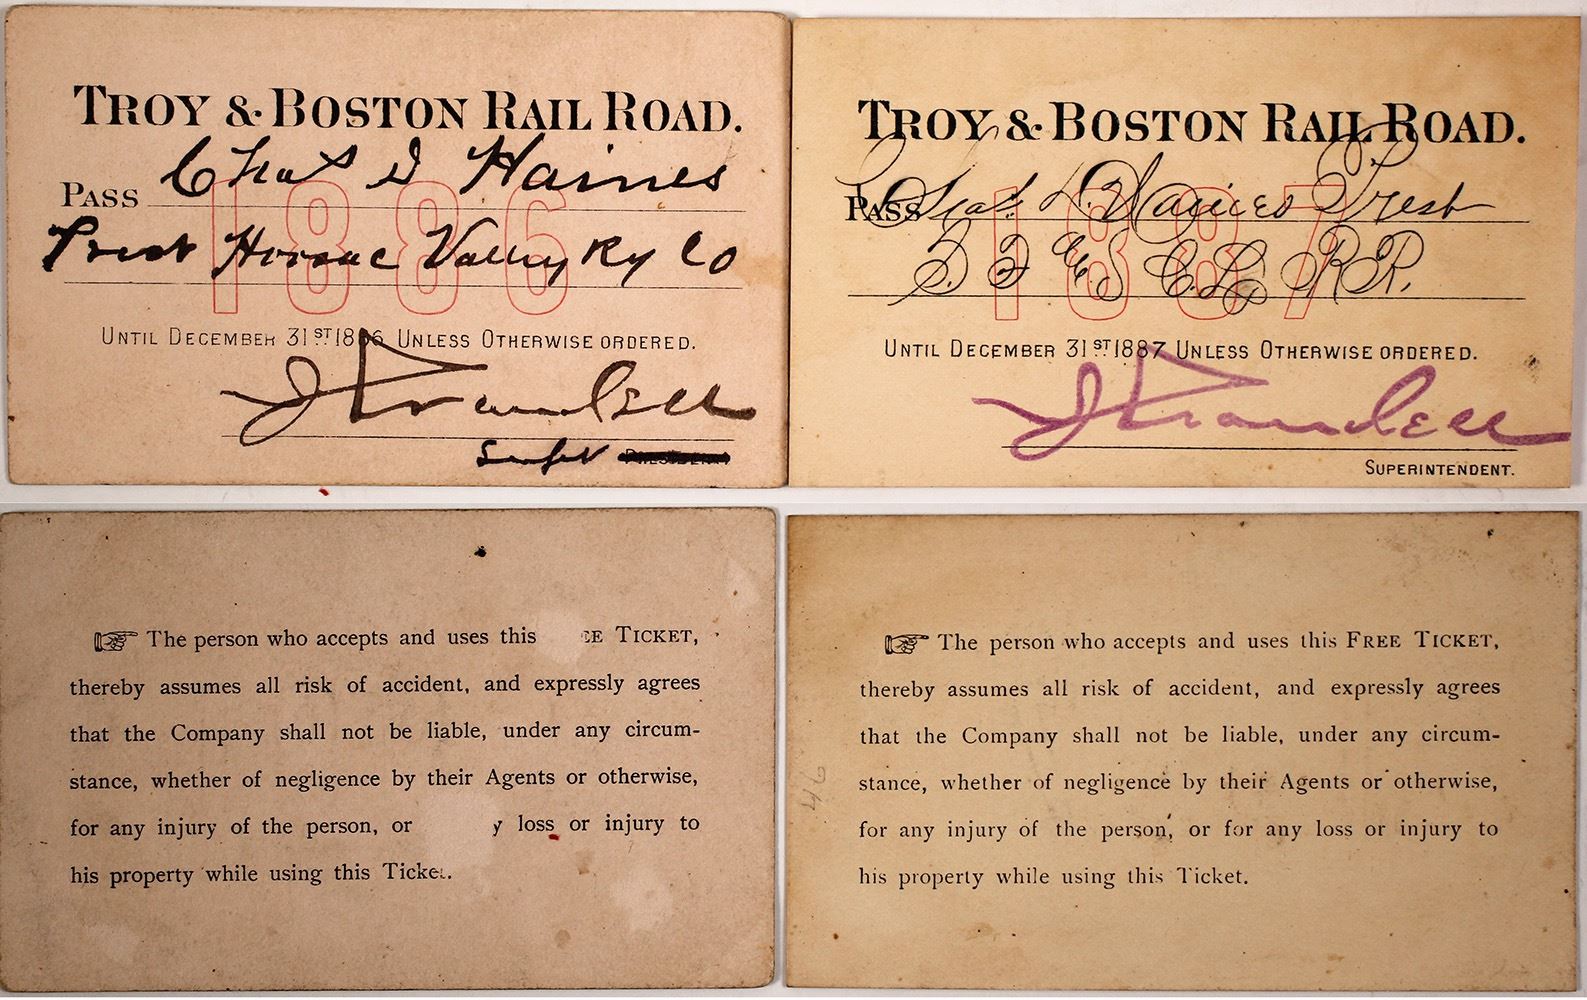 TROY & BOSTON RAIL ROAD.
PASS Chas D Haines
Prest Hoosac Valley Ry Co
1886
UNTIL DECEMBER 31ST 1886 UNLESS OTHERWISE ORDERED.
J Crandell
Supt PRESIDENT
TROY & BOSTON RAIL ROAD.
PASS Chas. D. Haines Prest
1887
R.R.
UNTIL DECEMBER 31ST 1887 UNLESS OTHERWISE ORDERED.
J Crandell
SUPERINTENDENT.
The person who accepts and uses this EE TICKET,
thereby assumes all risk of accident, and expressly agrees
that the Company shall not be liable, under any circum-
stance, whether of negligence by their Agents or otherwise,
for any injury of the person, or y loss or injury to
his property while using this Ticket.
The person who accepts and uses this FREE TICKET,
thereby assumes all risk of accident, and expressly agrees
that the Company shall not be liable, under any circum-
stance, whether of negligence by their Agents or otherwise,
for any injury of the person, or for any loss or injury to
his property while using this Ticket.
46